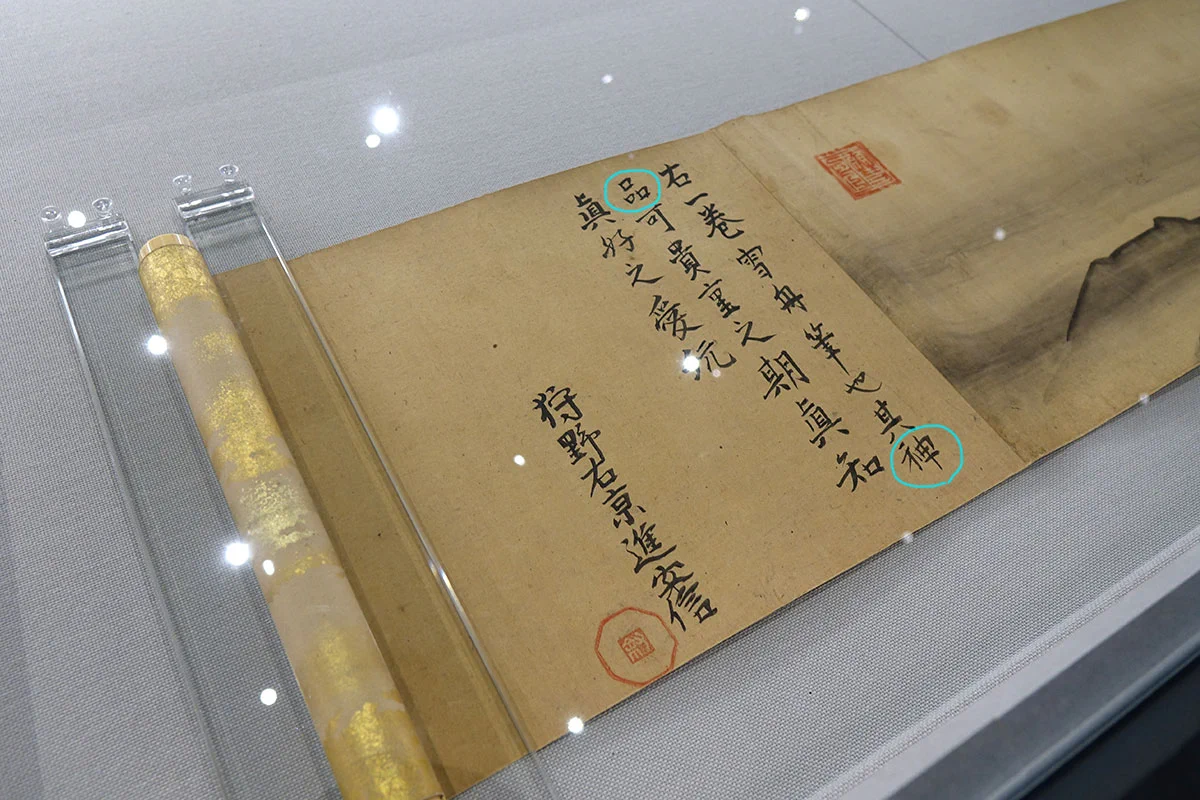 右一卷雪舟筆也其神
品可貴重之期眞知
眞好之愛玩
狩野右京進安信